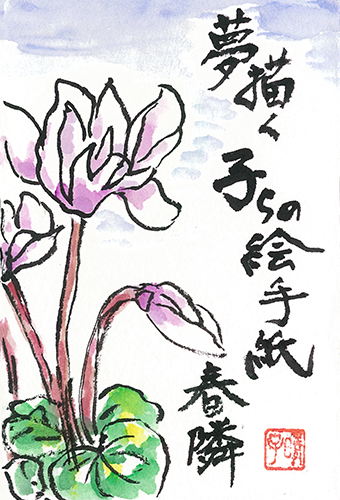 夢描く
子らの絵手紙
春隣